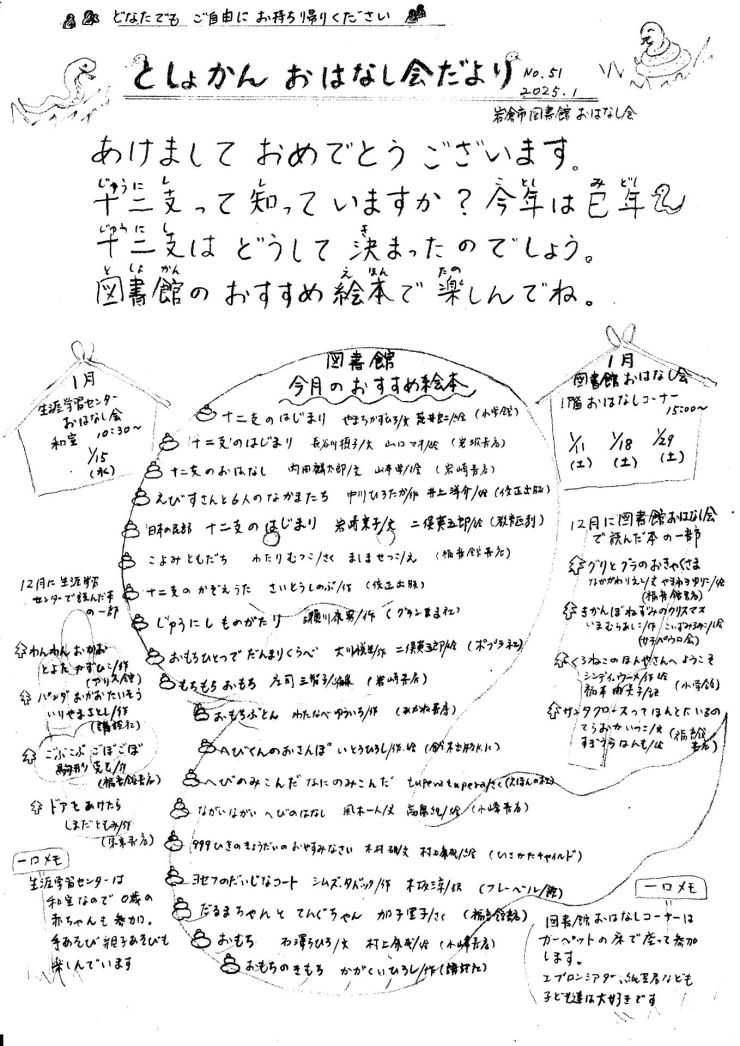 どなたでも ご自由に お持ち帰りください
としょかん おはなし会だより No.51
2025.1
岩倉市図書館 おはなし会
あけまして おめでとう ございます。
十二支って 知って いますか？ 今年は 巳年
じゅうに し し ことし み どし
十二支は どうして 決まったのでしょう。
じゅうに し き
図書館の おすすめ 絵本で 楽しんでね。
と しょ かん え ほん たの
1月
生涯学習センター
おはなし会
和室 10:30～
1/15
(水)
図書館
今月のおすすめ絵本
十二支のはじまり やまちかずひろ/文 荒井良二/絵 (小学館)
十二支のはじまり 長谷川摂子/文 山口マオ/絵 (岩波書店)
十二支のおはなし 内田麟太郎/文 山本孝/絵 (岩崎書店)
えびすさんと6人のなかまたち 中川ひろたか/作 井上洋介/絵 (佼正出版)
日本の民話 十二支のはじまり 岩崎京子/文 二俣英五郎/絵 (教育画劇)
こよみともだち わたりむつこ/さく ましませつこ/え (福音館書店)
十二支の かぞえうた さいとうしのぶ/作 (佼正出版)
じゅうにしものがたり 瀬川康男/作 (グランまま社)
おもちひとつで だんまりくらべ 大川悦生/作 二俣英五郎/絵 (ポプラ社)
もちもちおもち 庄司三智子/編集 (岩崎書店)
おもちぶとん わたなべゆういち/作 (あかね書房)
へびてんのおさんぽ いとうひろし/作.絵 (鈴木出版)
へびのみこんだ なにのみこんだ tupera tupera/さく (えほんの杜)
ながいながい へびのはなし 風木一人/文 高畠純/絵 (小峰書店)
999ひきのきょうだいのおやすみなさい 木村研/文 村上康成/絵 (ひさかたチャイルド)
ヨセフのだいじなコート シムズ・タバック/作 木坂涼/訳 (フレーベル館)
だるまちゃんと てんぐちゃん 加古里子/さく (福音館書店)
おもち ね澤ちひろ/文 村上康成/絵 (小峰書店)
おもちのきもち かがくいひろし/作 (講談社)
1月
図書館おはなし会
1階おはなしコーナー
15:00～
1/11 1/18 1/29
(土) (土) (土)
12月に図書館おはなし会
で読んだ本の一部
グリとグラのおきゃくさま
なかがわりえこ/文 やまわきゆりこ/絵
(福音館書店)
きかんぼねずみのクリスマス
いまむらあしこ/作 こいずみるみこ/絵
(女子パウロ会)
くろねこのほんやさんへようこそ
シンディ・ウーメ/作 絵
福本由美子/訳 (小学館)
サンタクロースってほんとにいるの
てるおかいつこ/文
すぎうらはんも/絵 (福音館書店)
12月に生涯学習
センターで読んだ本
の一部
わんわん おかお
とよたかずひこ/作
(アリス館)
パンダ おかおたいそう
いりやまさとし/作
(講談社)
ごぶごぶ ごぼごぼ
駒形克己/作
(福音館書店)
ドアをあけたら
しまだともみ/作
一口メモ
生涯学習センターは
和室なので 0歳の
赤ちゃんも参加。
手あそび 親子あそびも
楽しんでいます
一口メモ
図書館おはなしコーナーは
カーペットの床で座って参加
します。
エプロンシアター、紙芝居なども
子ども達は大好きです